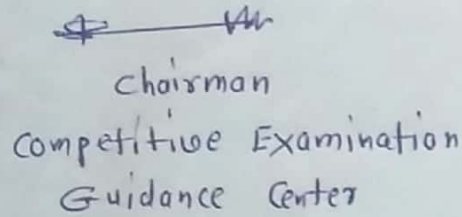 Chairman
Competitive Examination
Guidance Center